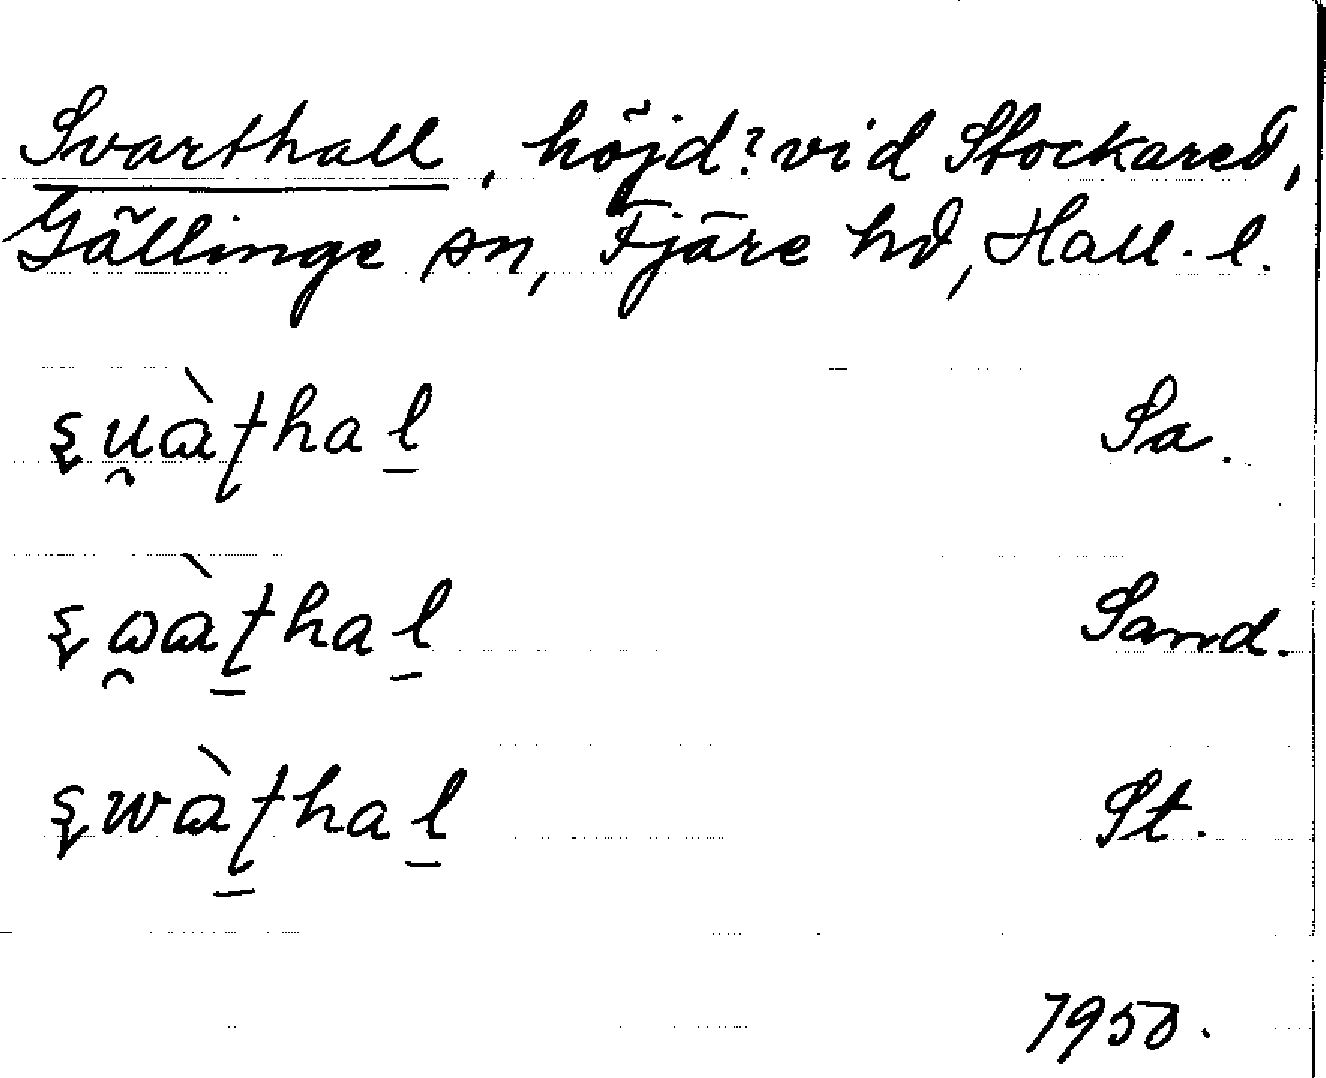 Svarthall, höjd? vid Stockared,
Gällinge sn, Fjäre hd, Hall. l.
ꞩu̯ɑ̀ʈhal̲ Sa.
ꞩɷ̯ɑ̀ʈ̲hal̲ Sand.
ꞩwɑ̀ʈ̲hal̲ St.
1950.